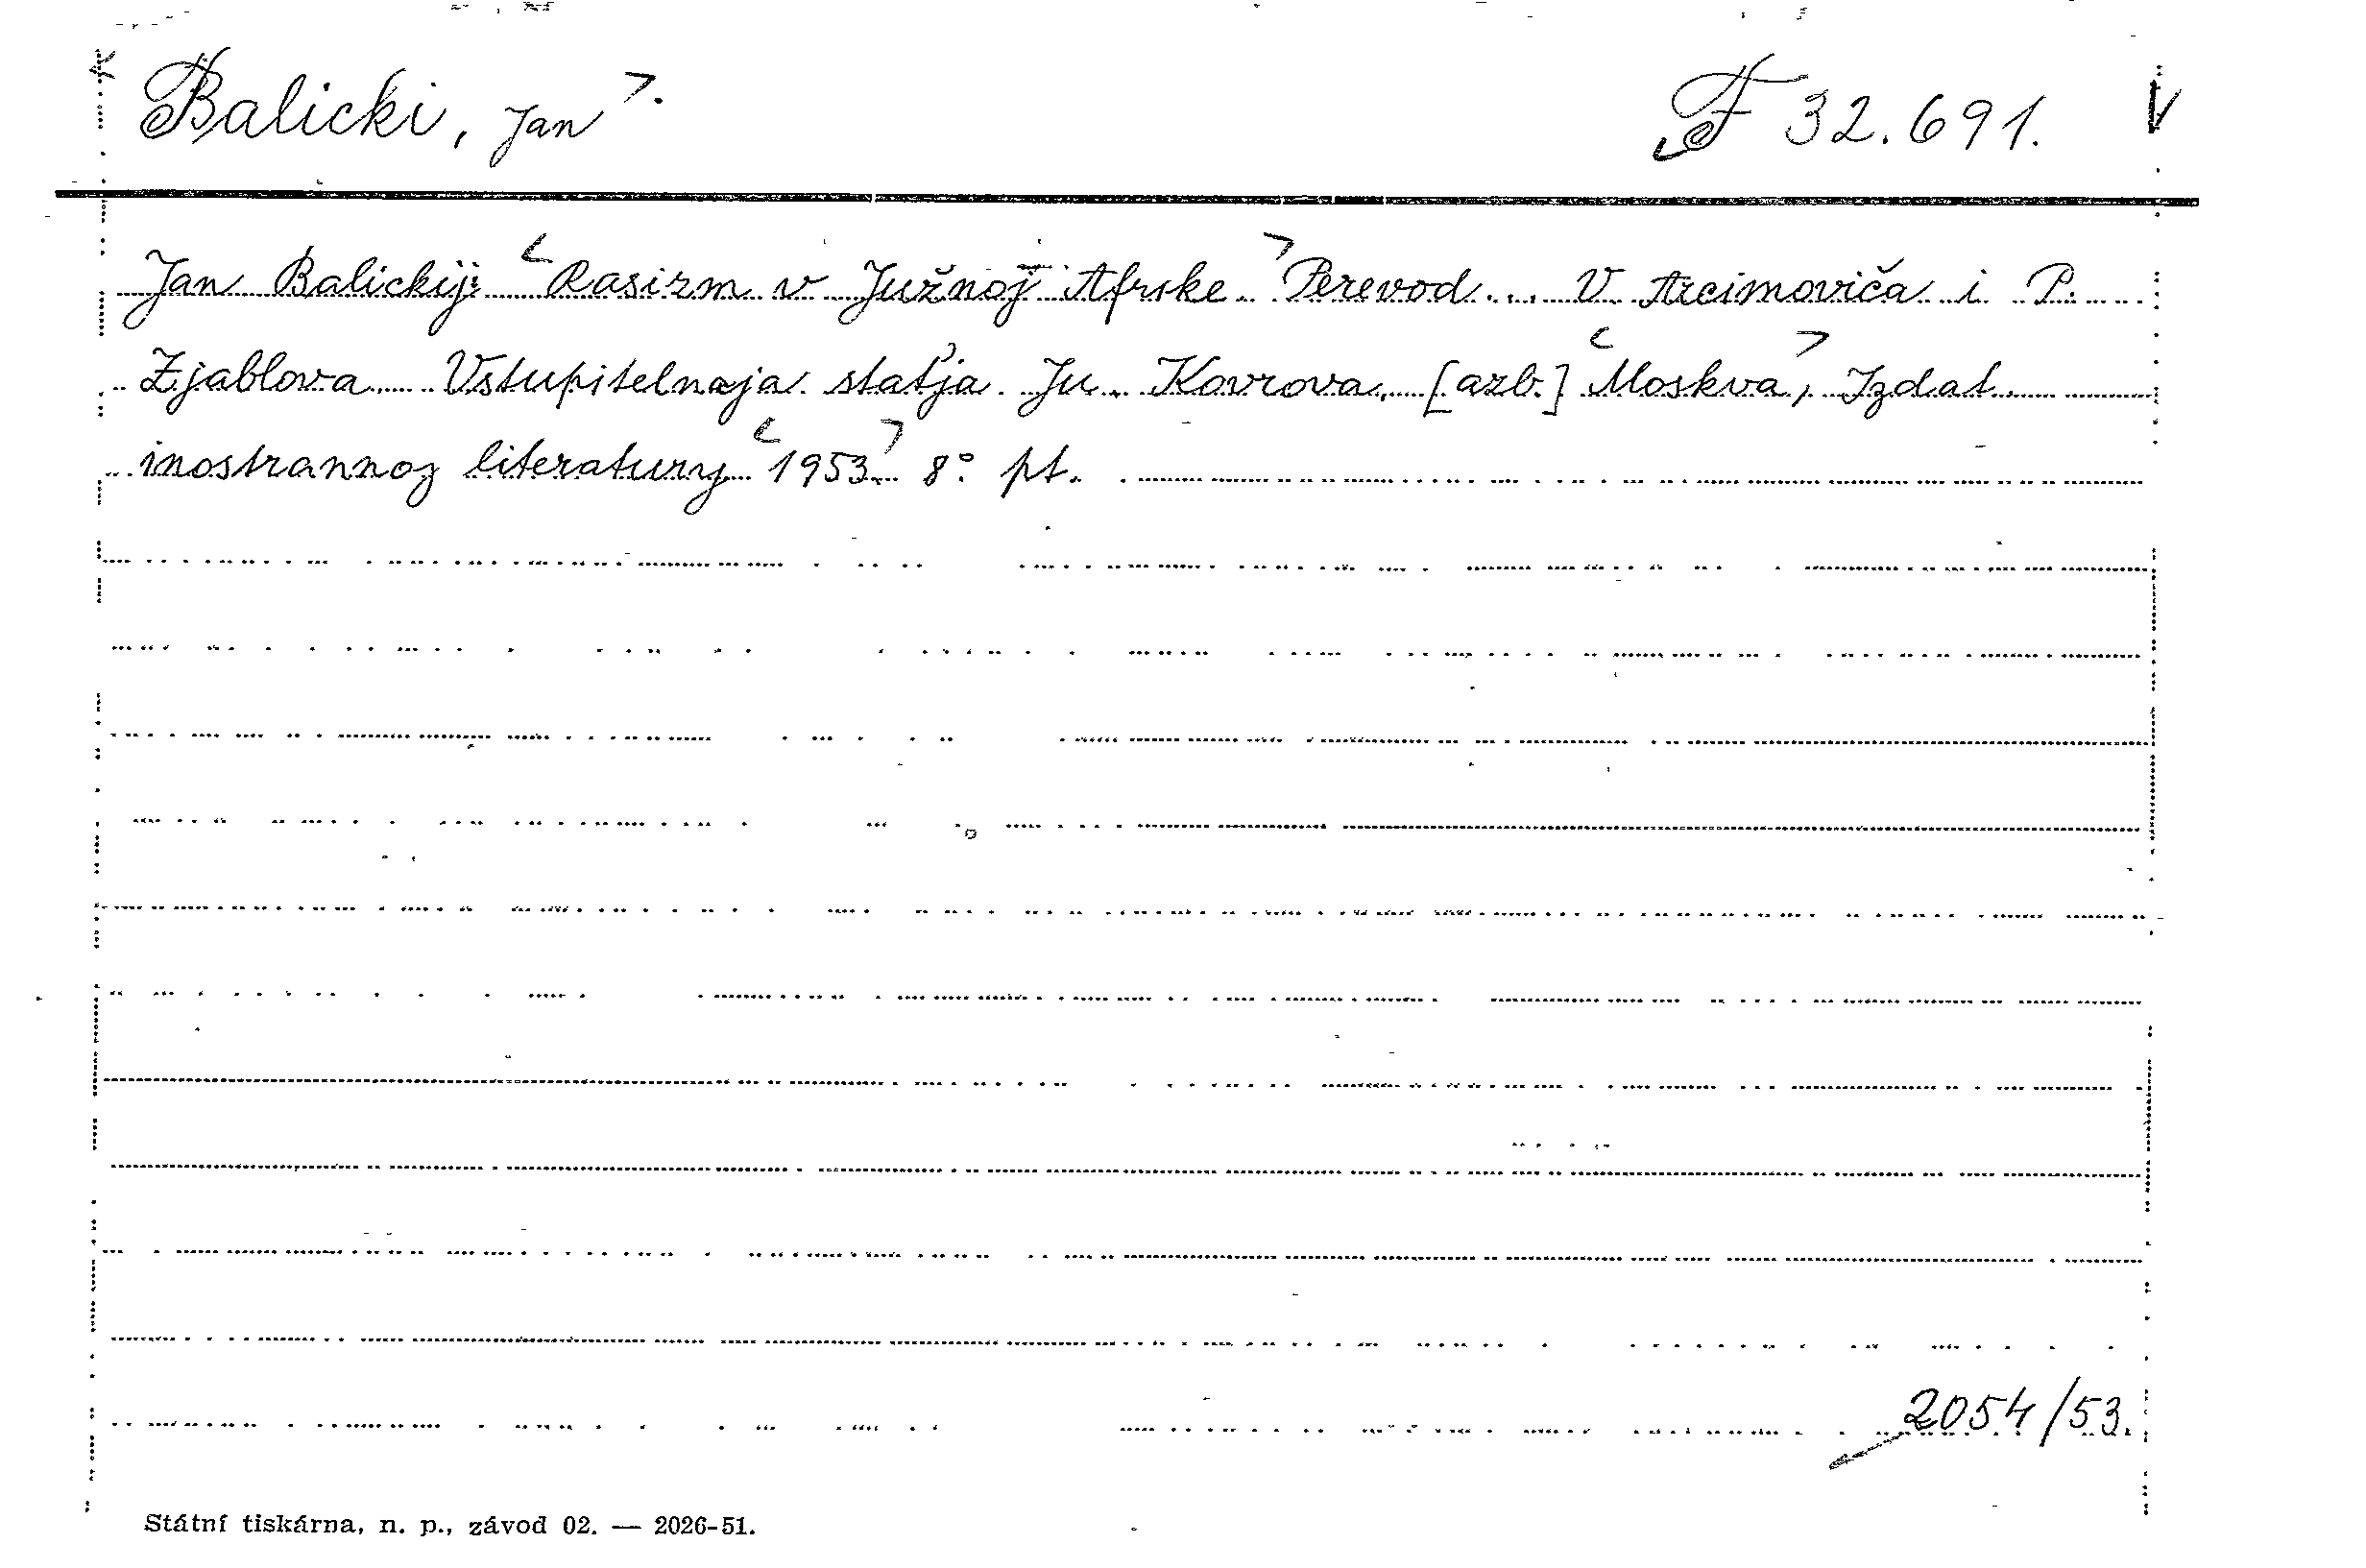 Balicki, Jan F 32.691.
Jan Balickij: Rasizm v Južnoj Afrike Perevod... V. Arcimoviča i P.
Zjablova. Vstupitelnaja staťja Ju. Kovrova. [azb.] Moskva, Izdat.
inostrannoj literatury 1953. 8° pt.
2054/53.
Státní tiskárna, n. p., závod 02. — 2026-51.